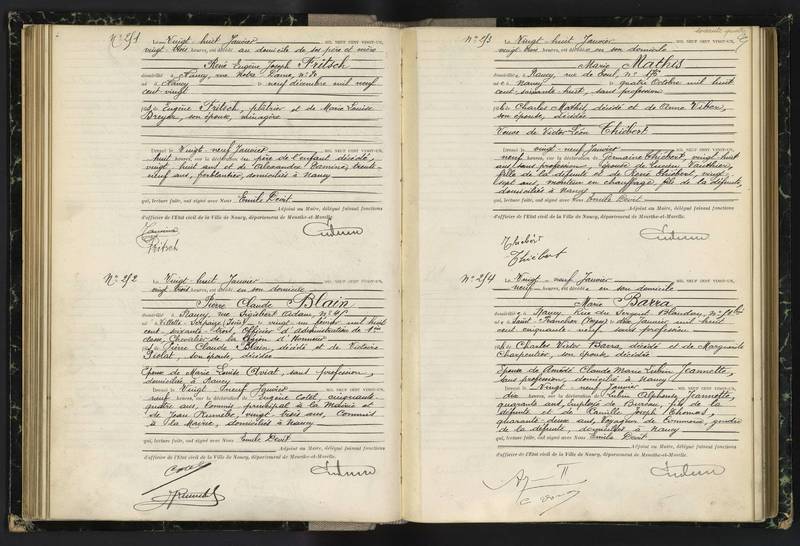 N° 2/1 Le Vingt-huit Janvier MIL NEUF CENT VINGT-UN,
vingt trois heures, est décédé au domicile de ses père et mère
René Eugène Joseph Fritsch
domicilié à Nancy, rue Notre Dame, n°
né à Nancy le neuf décembre mil neuf
cent vingt
fils de Eugène Fritsch, plâtrier et de Marie Louise
Breyer, son épouse, ménagère
Dressé le Vingt-neuf Janvier MIL NEUF CENT VINGT-UN,
huit heures, sur la déclaration du père de l'enfant décédé,
vingt huit ans et de Alexandre Camina, trente
neuf ans, ferblantier, domiciliés à Nancy
qui, lecture faite, ont signé avec Nous Emile Devit
Adjoint au Maire, délégué faisant fonctions
d'officier de l'Etat civil de la Ville de Nancy, département de Meurthe-et-Moselle.
Fritsch
N° 2/2 Le Vingt-huit Janvier MIL NEUF CENT VINGT-UN,
vingt trois heures, est décédé en son domicile
Pierre Claude Blain
domicilié à Nancy, rue Sigisbert Adam, n°
né à le vingt un février mil huit
cent soixante-trois, Officier d'administration de 1ère
classe, Chevalier de la Légion d'Honneur
fils de Pierre Claude Blain, décédé et de Victoire
Piolat, son épouse, décédée
Epoux de Marie Louise Aviat, sans profession,
domiciliée à Nancy
Dressé le Vingt-neuf Janvier MIL NEUF CENT VINGT-UN,
neuf heures, sur la déclaration de Eugène Colet, cinquante-
quatre ans, Commis principal à la Mairie et
de Jean vingt-trois ans, Commis
à la Mairie, domiciliés à Nancy
qui, lecture faite, ont signé avec Nous Emile Devit
Adjoint au Maire, délégué faisant fonctions
d'officier de l'Etat civil de la Ville de Nancy, département de Meurthe-et-Moselle.
N° 2/3 Le Vingt-huit Janvier MIL NEUF CENT VINGT-UN,
vingt trois heures, est décédée en son domicile
Marie Mathis
domiciliée à Nancy, rue de Toul, n°
née à Nancy le quatre Octobre mil huit
cent soixante huit, sans profession
fille de Charles Mathis, décédé et de Anne
son épouse, décédée
Veuve de Victor Léon Thiébert
Dressé le vingt-neuf Janvier MIL NEUF CENT VINGT-UN,
neuf heures, sur la déclaration de Germaine Thiébert, vingt huit
ans, sans profession, épouse de Lucien Vauthier,
fille de la défunte et de René Thiébert, vingt
sept ans, monteur en chauffage, fils de la défunte,
domiciliés à Nancy
qui, lecture faite, ont signé avec Nous Emile Devit
Adjoint au Maire, délégué faisant fonctions
d'officier de l'Etat civil de la Ville de Nancy, département de Meurthe-et-Moselle.
Thiébert
Thiébert
N° 2/4 Le Vingt-neuf Janvier MIL NEUF CENT VINGT-UN,
neuf heures, est décédée en son domicile
Marie Barra
domiciliée à Nancy, Rue du Sergent Blandan, n°
née à Saint-Franchy le dix Janvier mil huit
cent cinquante-neuf, sans profession
fille de Charles Victor Barra, décédé et de Marguerite
Charpentier, son épouse, décédée
Epouse de Amédé Claude Marie Lubin Jeannette,
sans profession, domicilié à Nancy
Dressé le Vingt-neuf Janvier MIL NEUF CENT VINGT-UN,
dix heures, sur la déclaration de Lubin Alphonse Jeannette,
quarante ans, Employé de Bureau, fils de la
défunte et de Camille Joseph Thomas,
quarante-deux ans, Voyageur de Commerce, gendre
de la défunte, domiciliés à Nancy
qui, lecture faite, ont signé avec Nous Emile Devit
Adjoint au Maire, délégué faisant fonctions
d'officier de l'Etat civil de la Ville de Nancy, département de Meurthe-et-Moselle.